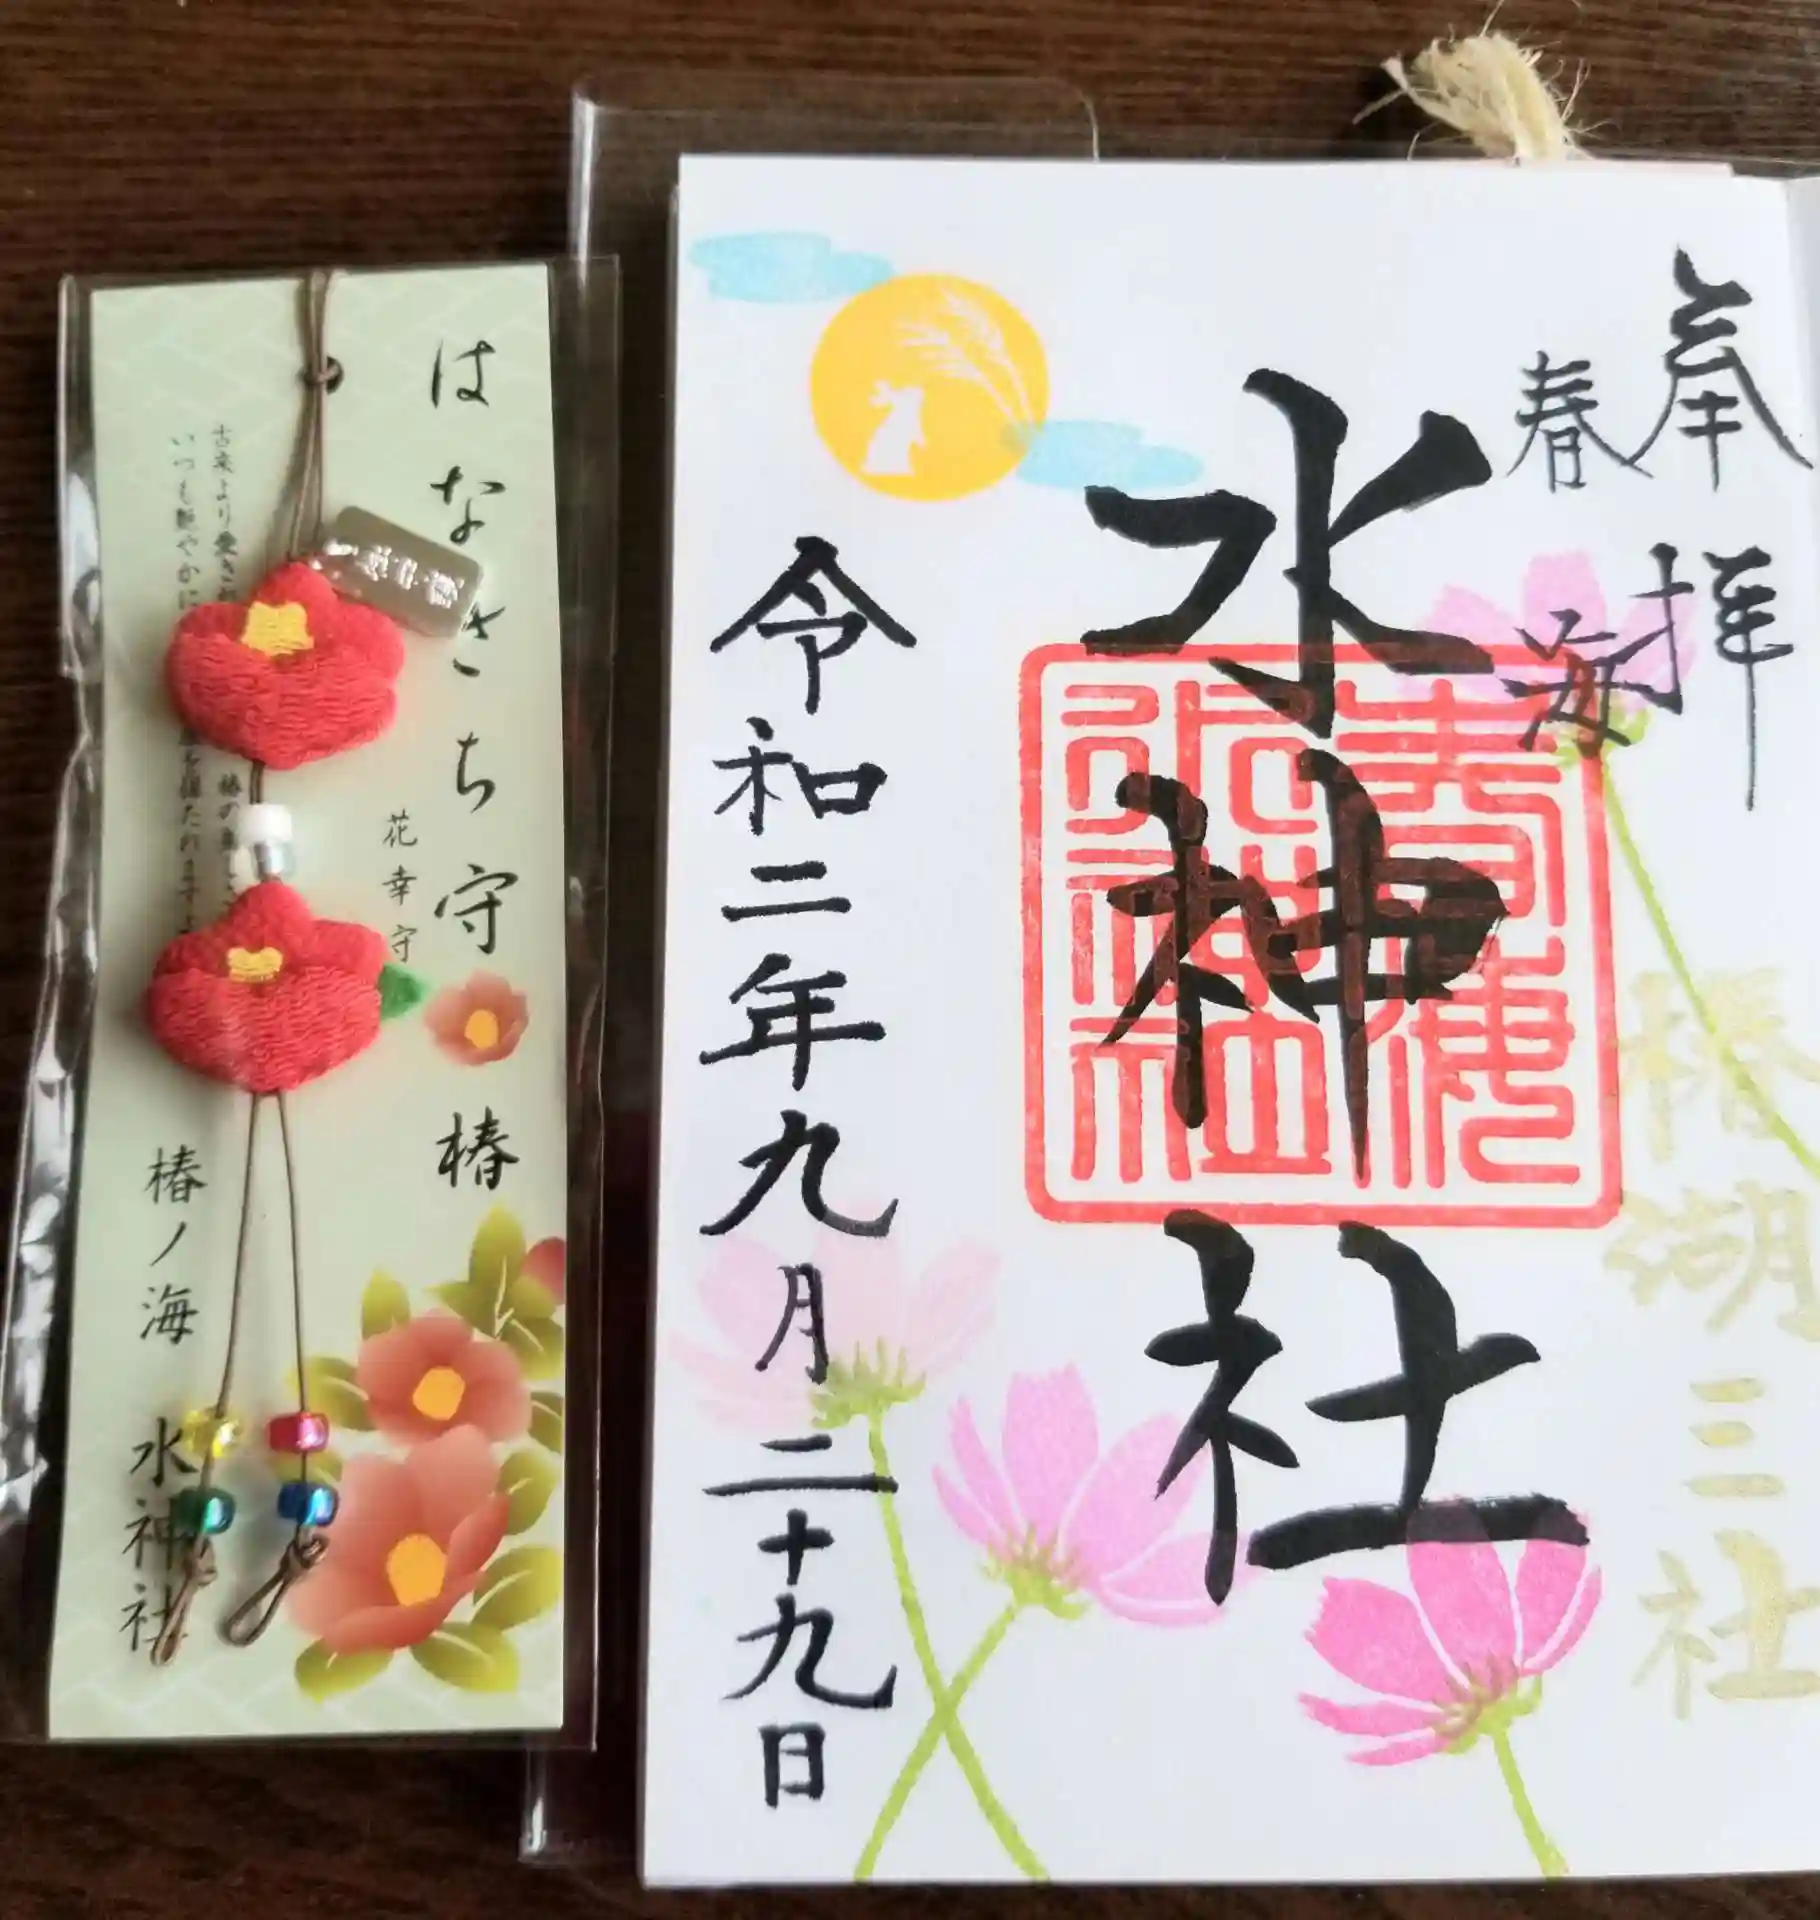 はなきち守 椿
花幸守
古来より愛され
いつも艶やかに
椿ノ海 水神社
奉拝
春海
水神社
令和二年九月二十九日
椿湖三社
春海
水神社